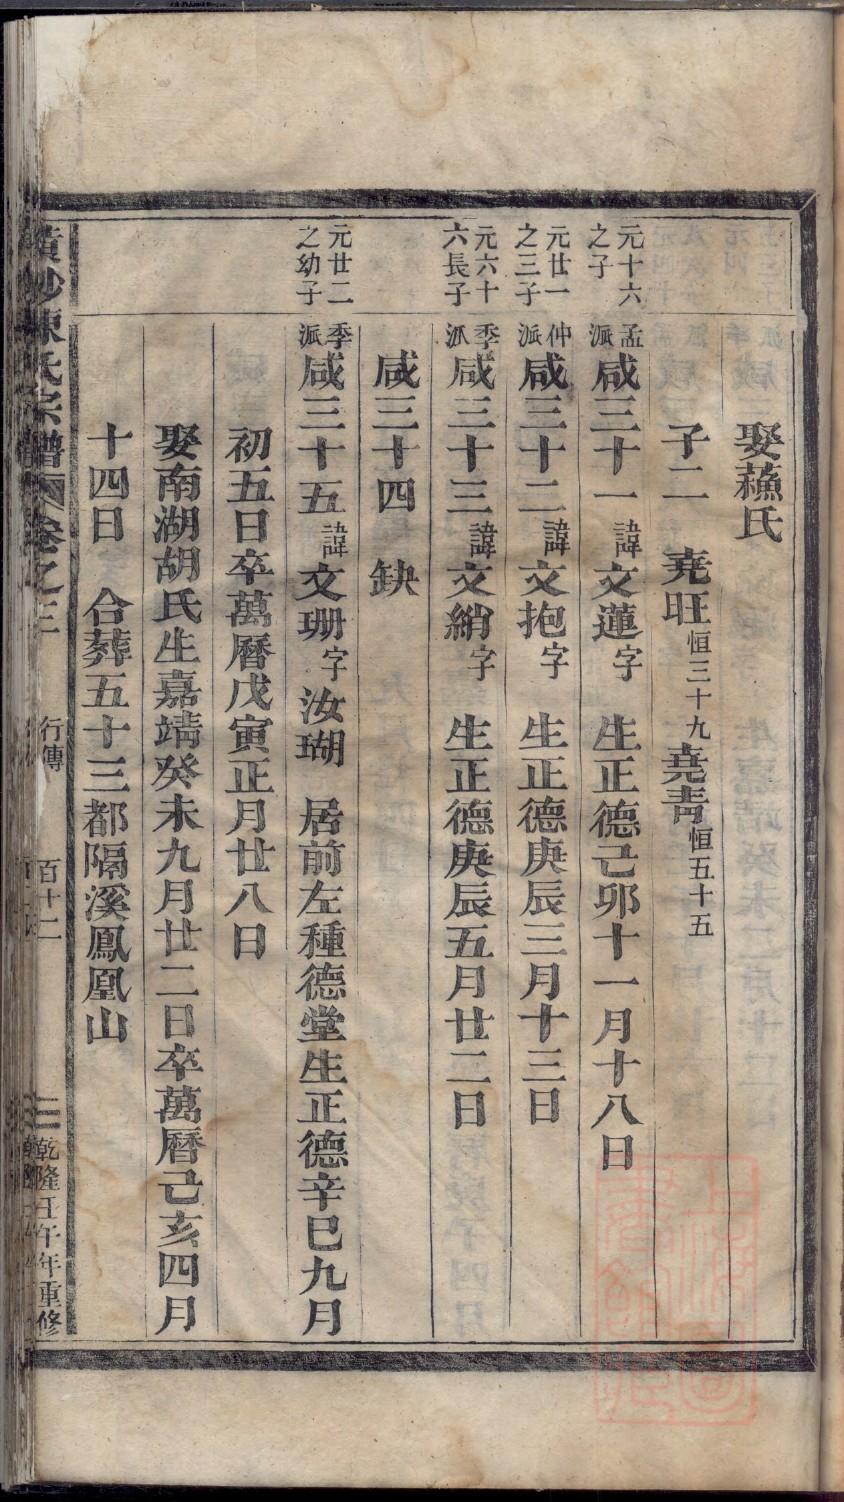 娶蘓氏
子二　堯旺恒三十九堯靑恒五十五
元十六之子
孟派咸三十一諱文蓮字　生正德己卯十一月十八日
元廿一之三子
仲派咸三十二諱文抱字　生正德庚辰三月十三日
元六十六長子
季派咸三十三諱文綃字　生正德庚辰五月廿二日
咸三十四　缺
元廿二之幼子
季派咸三十五諱文珊字汝瑚　居前左種德堂生正德辛巳九月
初五日卒萬曆戊寅正月廿八日
娶南湖胡氏生嘉靖癸未九月廿二日卒萬曆己亥四月
十四日　合葬五十三都隔溪鳳凰山
陳氏宗譜　卷之三　行傳　百十二　乾隆　午年重修